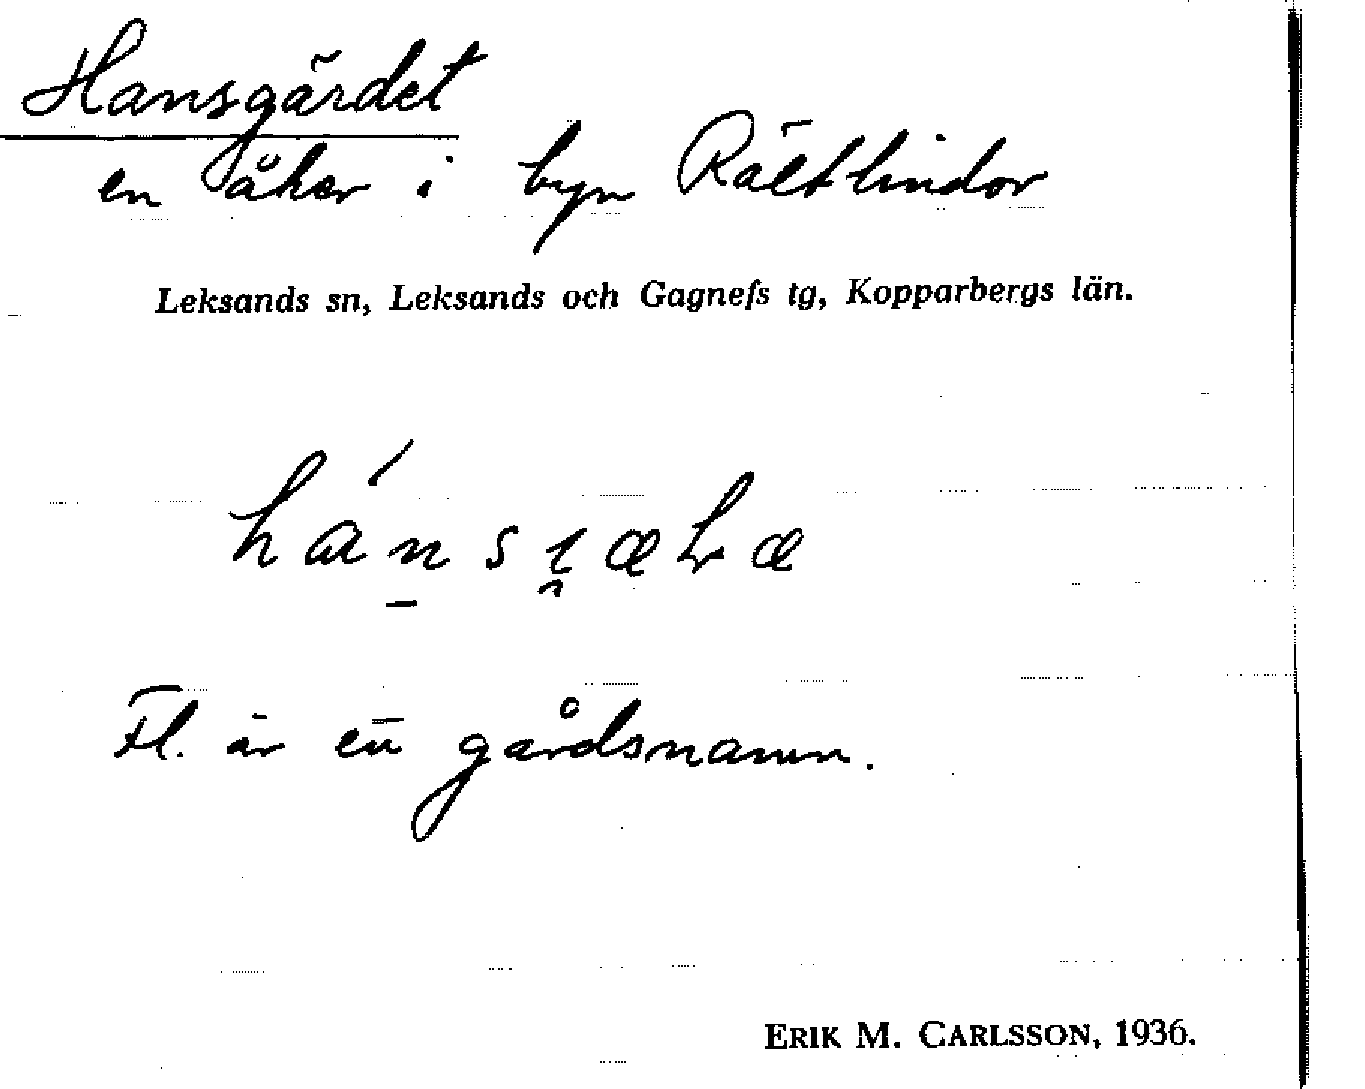 Hansgärdet
en åker i byn Rältlindor
Leksands sn, Leksands och Gagnefs tg, Kopparbergs län.
Fl. är ett gårdsnamn.
ERIK M. CARLSSON, 1936.